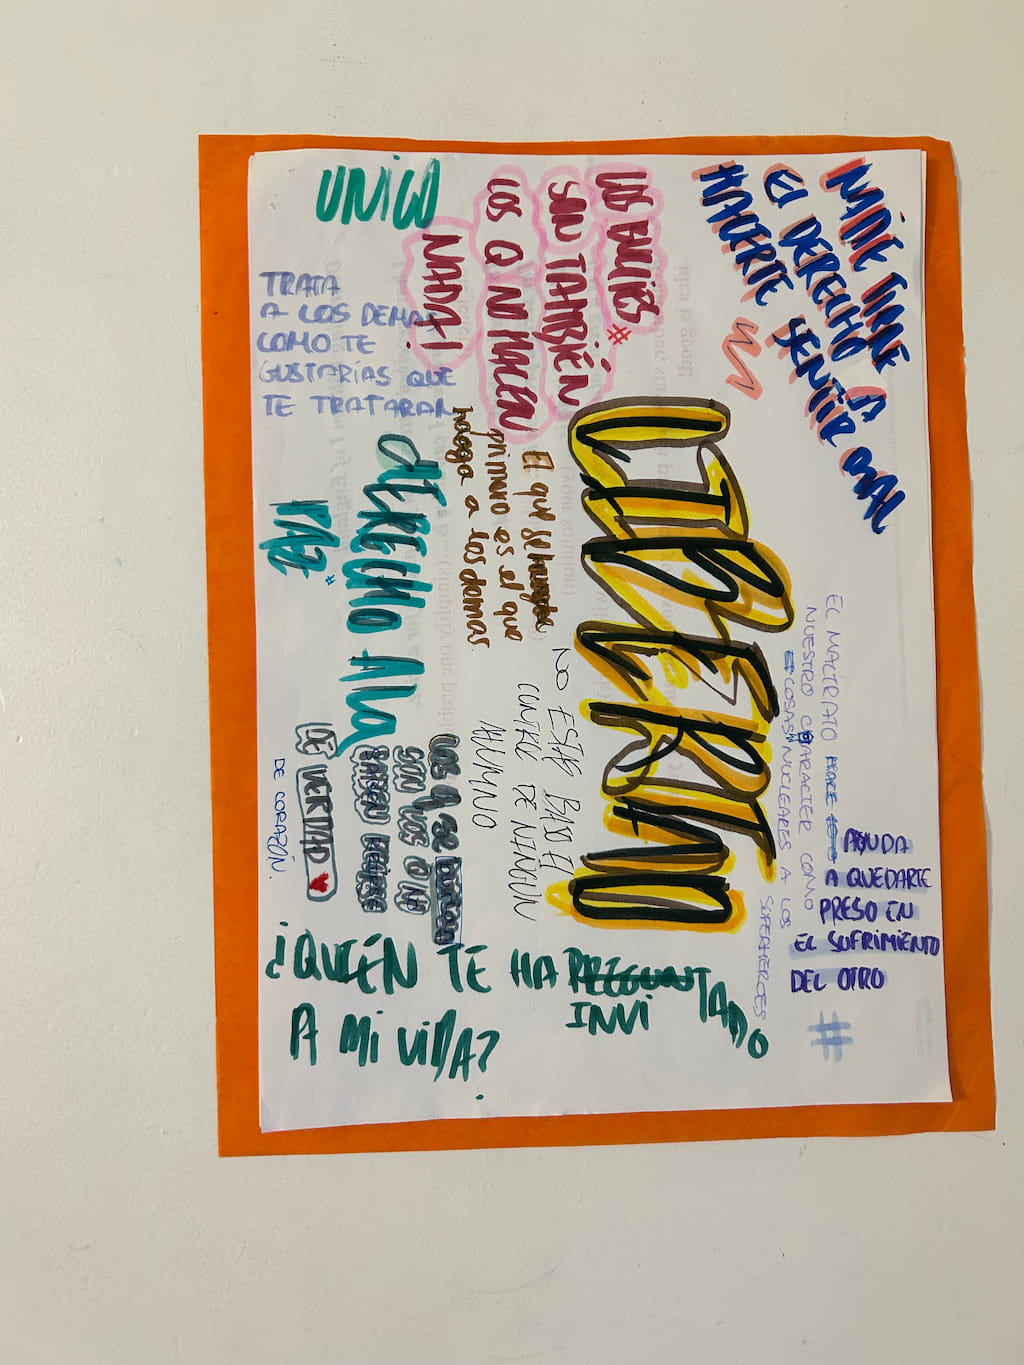 NADIE TIENE
EL DERECHO A
HACERTE SENTIR MAL
LOS
SON TAMBIÉN
LOS Q NO HACEN
NADA!
UNICO
TRATA
A LOS DEMAS
COMO TE
GUSTARÍAS QUE
TE TRATARAN
LIBERTAD
El que se
primero es el que
a los demas
DERECHO A LA
PAZ
NO ESTAS BAJO EL
DE NINGUN
EL MALTRATO HACE
NUESTRO CARACTER COMO
COSAS NUCLEARES A LOS
SUPERHÉROES
AYUDA
A QUEDARTE
PRESO EN
EL SUFRIMIENTO
DEL OTRO
#
LOS Q SE
SON LOS Q NO
SABEN
DE VERDAD
DE CORAZÓN.
¿QUIÉN TE HA INVITADO
A MI VIDA?